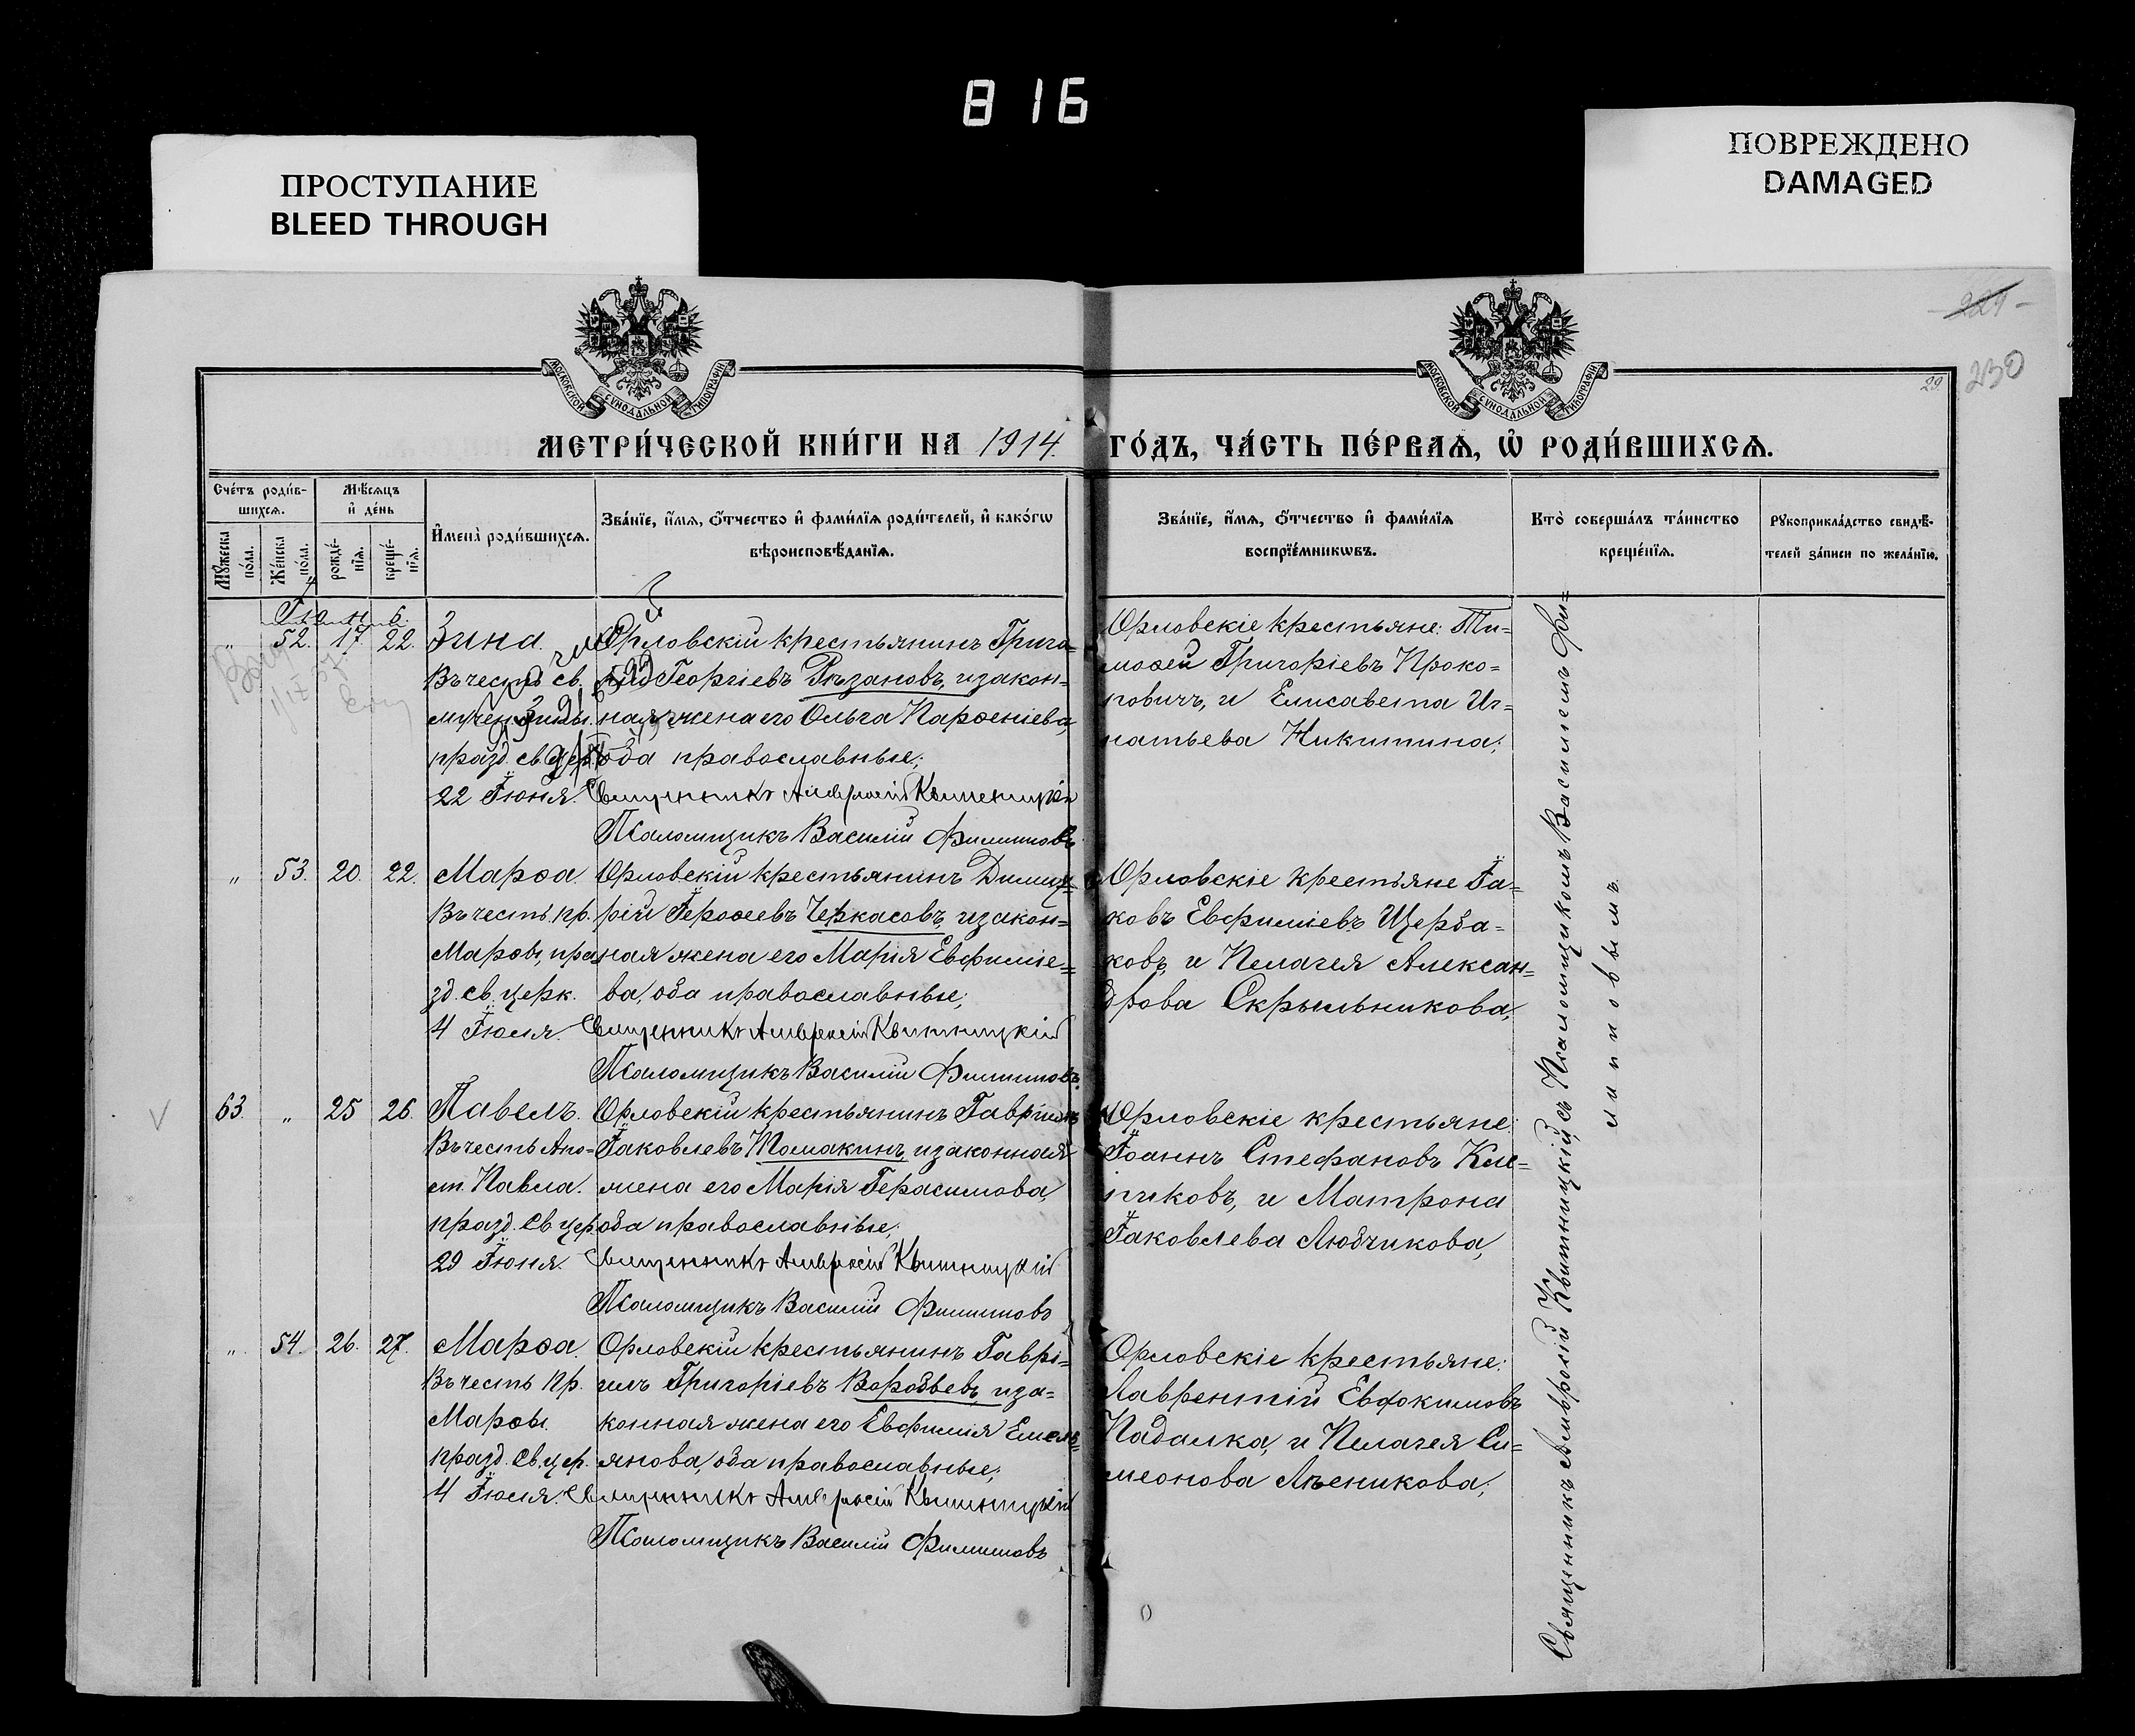 816
ПРОСТУПАНИЕ
BLEED THROUGH
ПОВРЕЖДЕНО
DAMAGED
221 -
230
29.
МОСКОВСКОЙ СѴНОДАЛЬНОЙ ТИПОГРАФІИ
МОСКОВСКОЙ СѴНОДАЛЬНОЙ ТИПОГРАФІИ
МЕТРИ́ЧЕСКОЙ КНИ́ГИ НА 1914. ГО́ДЪ, ЧА́СТЬ ПЕ́РВАѦ, Ѡ҆ РОДИ́ВШИХСѦ.
Сче́тъ роди́в-
шихсѧ.
Мѣ́сѧцъ
и҆ де́нь
Мꙋ́жеска по́ла.
Же́нска по́ла.
рожде́-
нїѧ.
креще́-
нїѧ.
И҆мена̀ роди́вшихсѧ.
Зва́нїе, и҆́мѧ, ѻ҆́тчество и҆ фами́лїѧ роди́телей, и҆ како́гѡ
вѣроисповѣ́данїѧ.
Зва́нїе, и҆́мѧ, ѻ҆́тчество и҆ фами́лїѧ
воспрїе́мникѡвъ.
Кто̀ соверша́лъ та́инство
креще́нїѧ.
Рꙋкоприкла́дство свидѣ́-
телей за́писи по жела́нїю.
Іюнь.
„ 52. 17. 22. Зина.
Въ честь св.
мучен. Зины.
празд. св. церк.
22 Іюня.
Орловскій крестьянинъ Григо=
рій Георгіевъ Рѣзановъ, и закон=
ная жена его Ольга Парѳеніева,
оба православные;
Священникъ Амвросій Квитницкій
Псаломщикъ Василій Филиповъ
Орловскіе крестьяне: Ти=
моѳей Григоріевъ Проко=
повичъ, и Елисавета Иг=
натьева Никитина;
„ 53. 20. 22. Марѳа.
Въ честь. пр.
Марѳы, пра=
зд. св. церк.
4 Іюля.
Орловскій крестьянинъ Димит=
рій Іероѳеевъ Черкасовъ, и закон=
ная жена его Марія Евфиміе=
ва, оба православные;
Священникъ Амвросій Квитницкій
Псаломщикъ Василій Филиповъ.
Орловскіе крестьяне Іа=
ковъ Евфиміевъ Щерба=
ковъ, и Пелагея Алексан=
дрова Скрыльникова,
63. „ 25 26. Павелъ.
Въ честь Апо=
ст. Павла.
празд. св. цер.
29 Іюня.
Орловскій крестьянинъ Гавріилъ
Іаковлевъ Томакинъ, и законная
жена его Марія Герасимова,
оба православные;
Священникъ Амвросій Квитницкій
Псаломщикъ Василій Филиповъ
Орловскіе крестьяне:
Іоаннъ Стефановъ Кле=
пиковъ, и Матрона
Іаковлева Любчикова,
„ 54. 26. 27. Марѳа.
Въ честь Пр.
Марѳы.
празд. св. цер.
4 Іюля.
Орловскій крестьянинъ Гаврі=
илъ Григоріевъ Воробьевъ, и за=
конная жена его Евфимія Емель=
янова, оба православные;
Священникъ Амвросій Квитницкій
Псаломщикъ Василій Филиповъ
Орловскіе крестьяне:
Лаврентій Евдокимовъ
Падалка, и Пелагея Си=
меонова Лѣсникова;
Священникъ Амвросій Квитницкій, съ Псаломщикомъ Василіемъ Фи=
липповымъ.